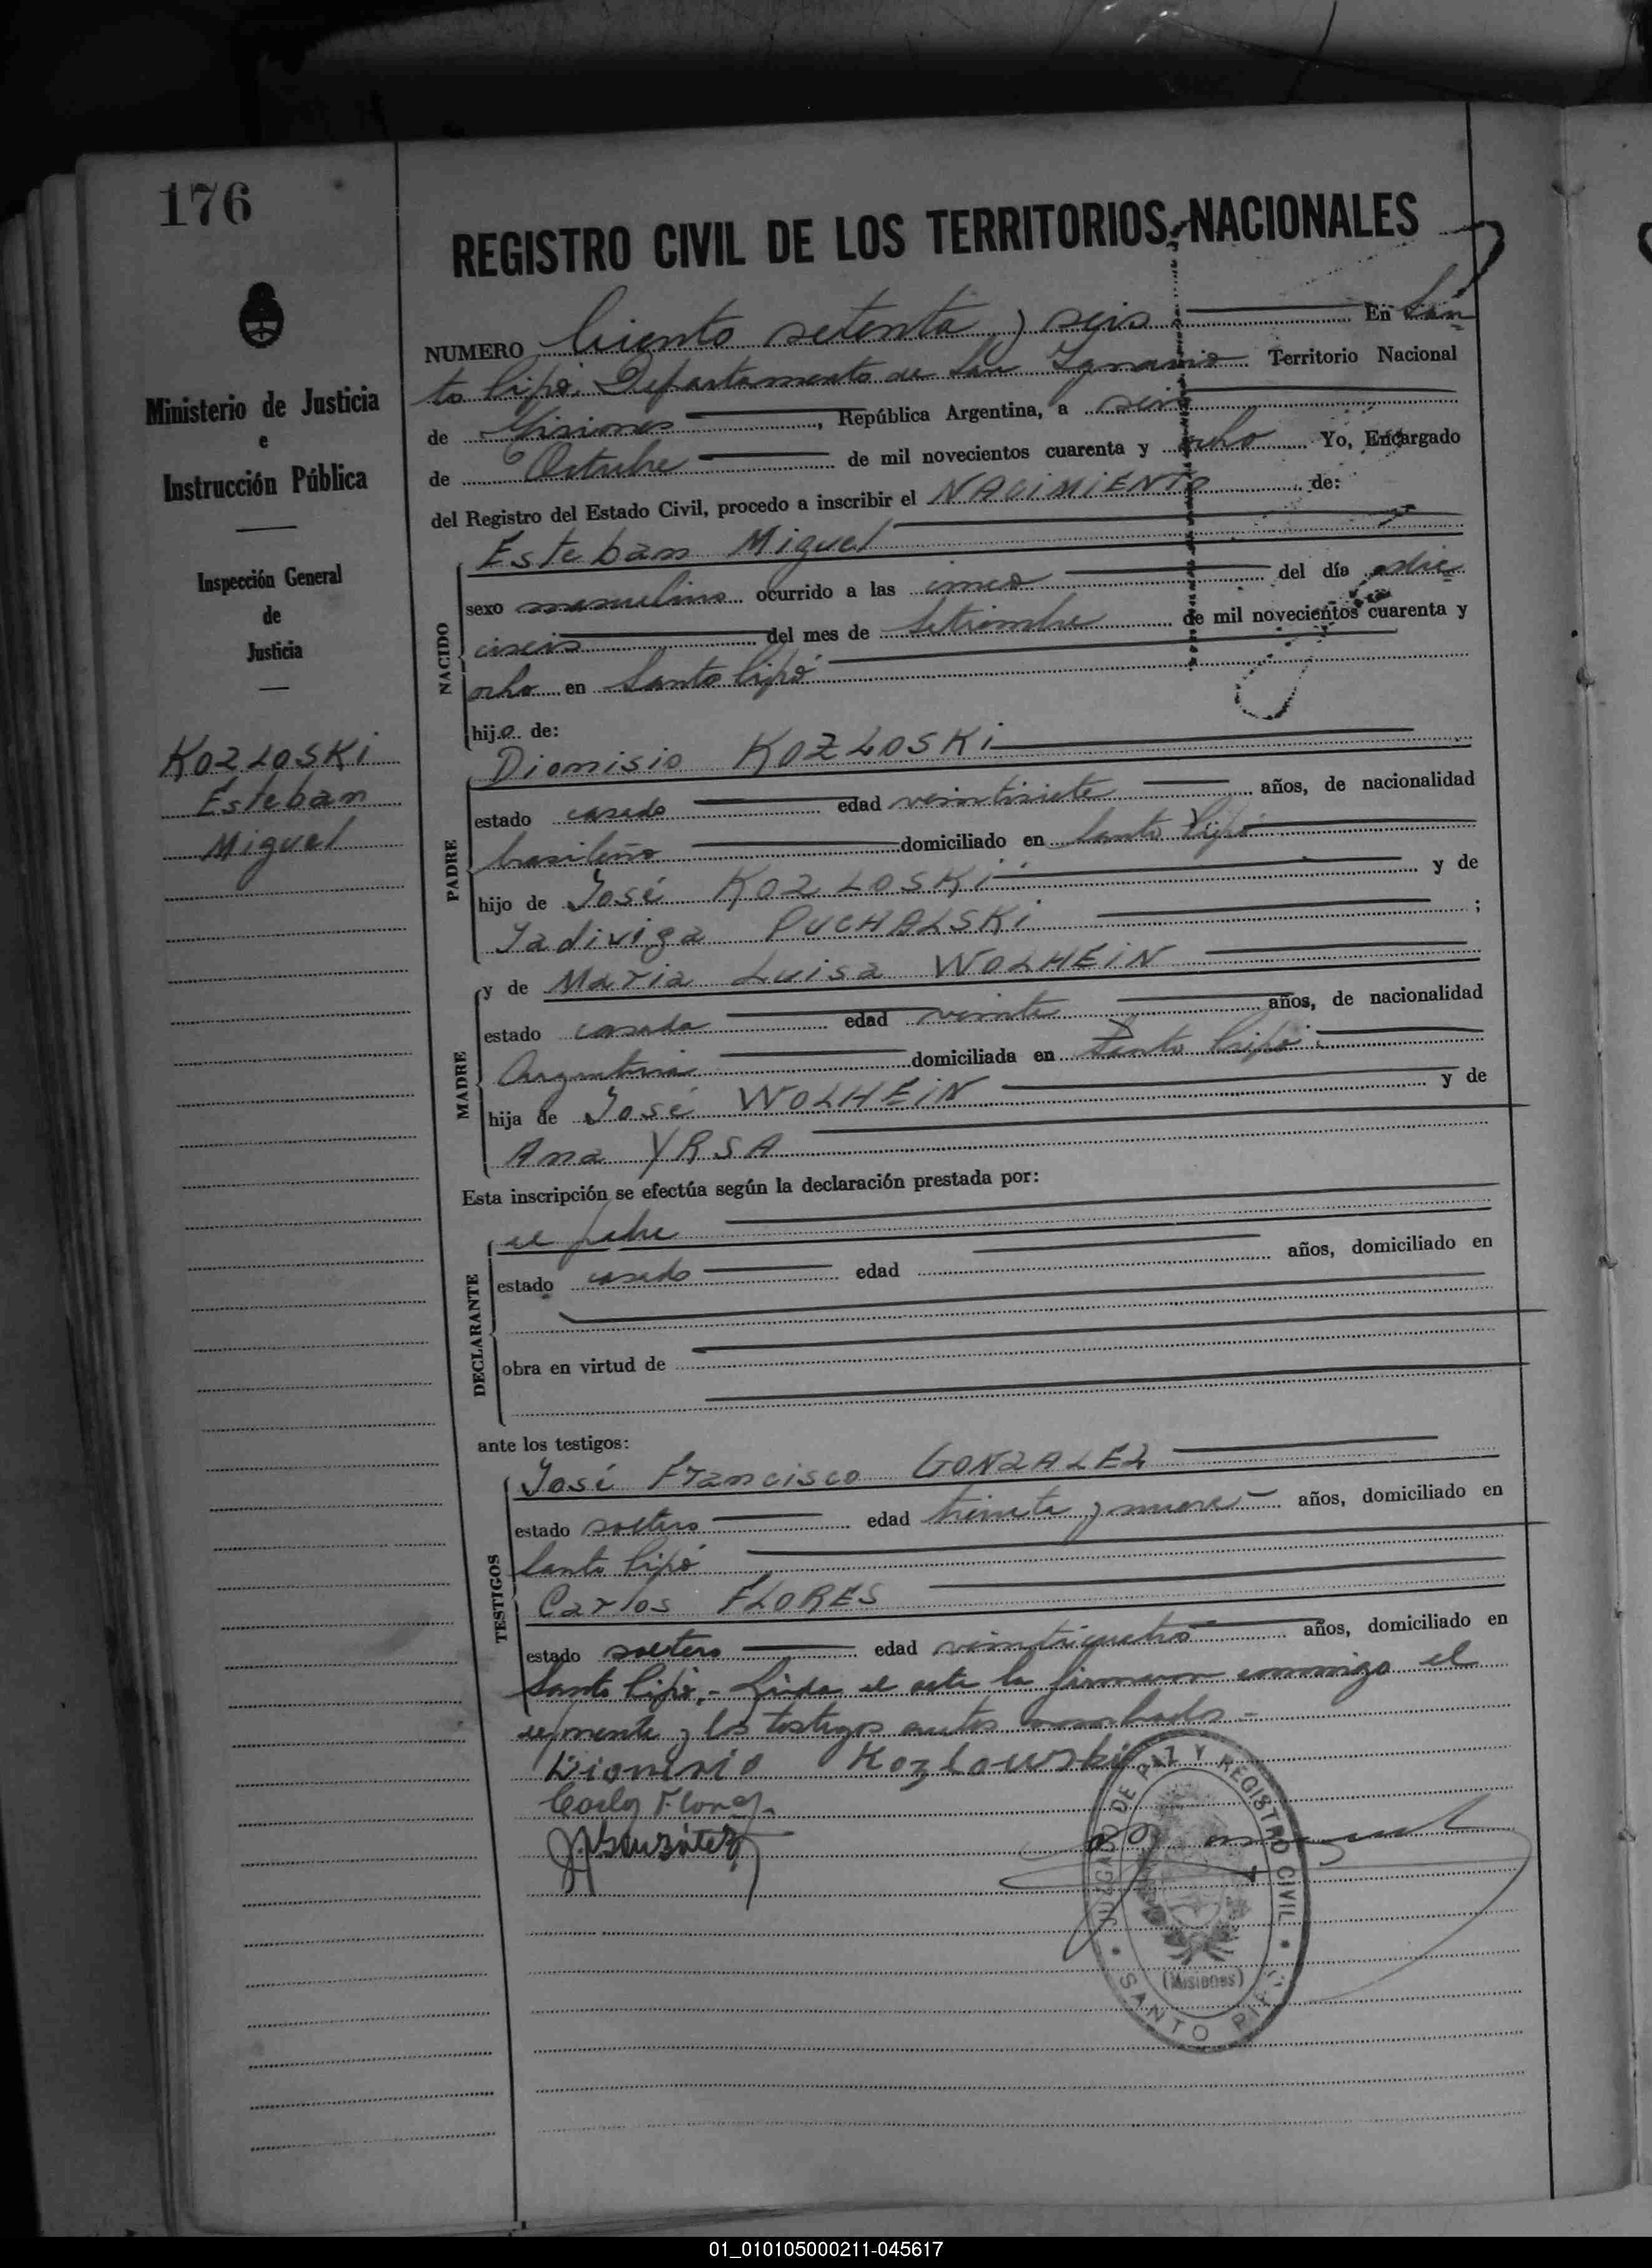 176
REGISTRO CIVIL DE LOS TERRITORIOS NACIONALES
Ministerio de Justicia
e
Instrucción Pública
Inspección General
de
Justicia
KOZLOSKI
Esteban
Miguel
NUMERO Ciento setenta y seis En San
to Pipó. Departamento de San Ignacio Territorio Nacional
de Misiones, República Argentina, a seis
de Octubre de mil novecientos cuarenta y ocho Yo, Encargado
del Registro del Estado Civil, procedo a inscribir el NACIMIENTO de:
NACIDO
Esteban Miguel
sexo masculino ocurrido a las cinco del día die
ciseis del mes de Setiembre de mil novecientos cuarenta y
ocho en Santo Pipó
hijo de:
PADRE
Dionisio KOZLOSKI
estado casado edad veintisiete años, de nacionalidad
brasileño domiciliado en Santo Pipó
hijo de José KOZLOSKI y de
Jadiviga PUCHALSKI ;
MADRE
y de Maria Luisa WOLHEIN
estado casada edad veinte años, de nacionalidad
Argentina domiciliada en Santo Pipó
hija de José WOLHEIN y de
Ana YRSA
Esta inscripción se efectúa según la declaración prestada por:
DECLARANTE
el padre
estado casado edad años, domiciliado en
obra en virtud de
ante los testigos:
TESTIGOS
José Francisco GONZALEZ
estado soltero edad treinta y nueve años, domiciliado en
Santo Pipó
Carlos FLORES
estado soltero edad veinticuatro años, domiciliado en
Santo Pipó.- Leida el acta la firmaron conmigo el
exponente y los testigos antes nombrados -
Dionisio Kozlowski
Carlos Flores
J.F. González
JUZGADO DE PAZ Y REGISTRO CIVIL
(Misiones)
SANTO PIPÓ
01_010105000211-045617